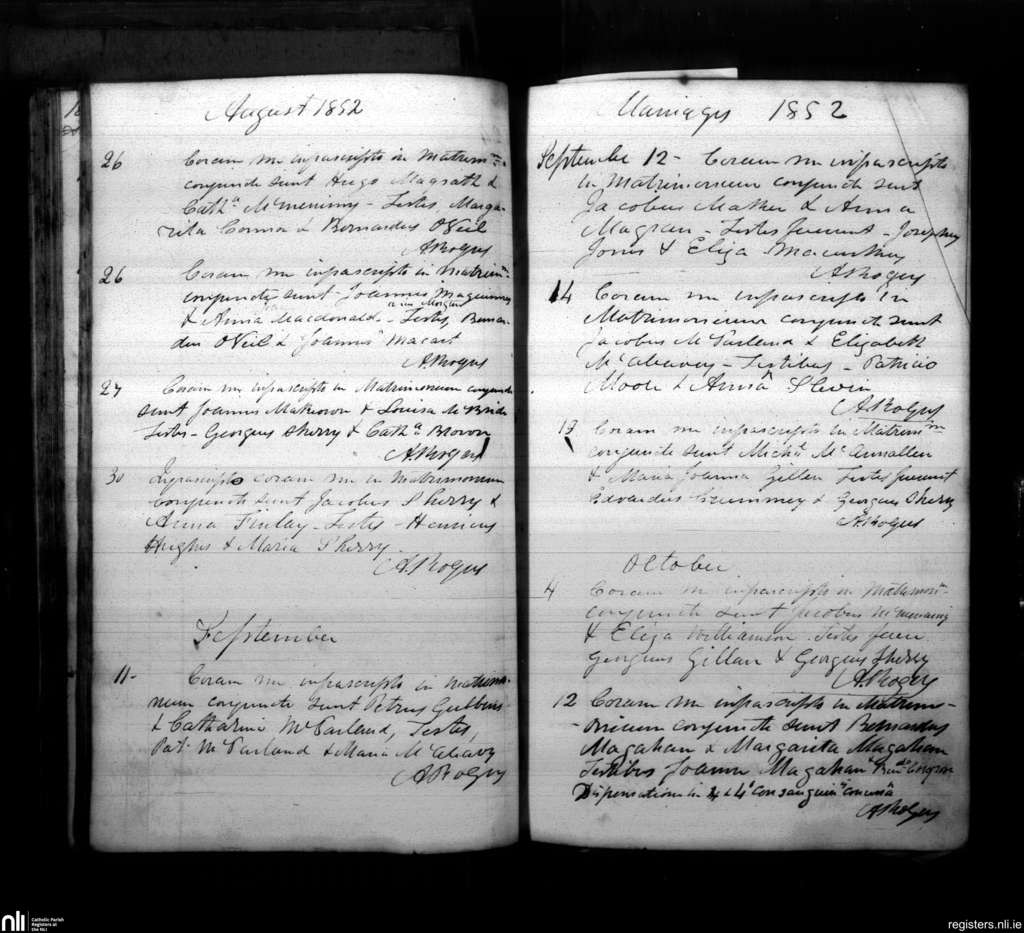 August 1852
26 Coram me infrascripto in Matrim
conjuncti sunt Hugo Magrath &
Cath.a McMenimy - Testes, Marga-
rita Connor & Bernardus O'Neil
A Rogers
26 Coram me infrascripto in Matrim
conjuncti sunt Joannes Maguinness
& Anna Macdonald - Testes, Bernar-
dus O'Neil & Joannes Macart
A Rogers
27 Coram me infrascripto in Matrimonium conjuncti
sunt Joannes Makeown & Louisa McBride
Testes - Georgius Sherry & Cath.a Brown
A. Rogers
30 Infrascripto coram me in Matrimonium
conjuncti sunt Jacobus Sherry &
Anna Finlay - Testes - Henricus
Hughes & Maria Sherry
A. Rogers
September
11 - Coram me infrascripto in Matrimo-
nium conjuncti sunt Petrus Gubbins
& Catharina McParland, Testes,
Pat. McParland & Maria McAleavy
A Rogers
Marriages 1852
September 12 - Coram me infrascripto
in Matrimonium conjuncti sunt
Jacobus Mather & Anna
Magran - Testes fuerunt - Josephus
Jones & Eliza
A Rogers
14 Coram me infrascripto in
Matrimonium conjuncti sunt
Jacobus McParland & Elizabeth
McAleavey - Testibus - Patricio
Moore & Anna Slevin
A. Rogers
13 Coram me infrascripto in Matrim
conjuncti sunt Mich.l McAnnallen
& Maria Joanna Gillen Testes fuerunt
Edvardus Crummey & Georgius Sherry
A. Rogers
October
4 Coram me infrascripto in Matrimoni
conjuncti sunt Jacobus McMenamy
& Eliza Williamson. Testes fuer.
Georgius Gillan & Georgius Sherry
A. Rogers
12 Coram me infrascripto in Matrim-
-onium conjuncti sunt Bernardus
Magahan & Margarita Magahan
Testibus Joanne Magahan
Dispensatione in 4 & 4 consanguin
A Rogers
nli Catholic Parish
Registers at
the NLI
registers.nli.ie